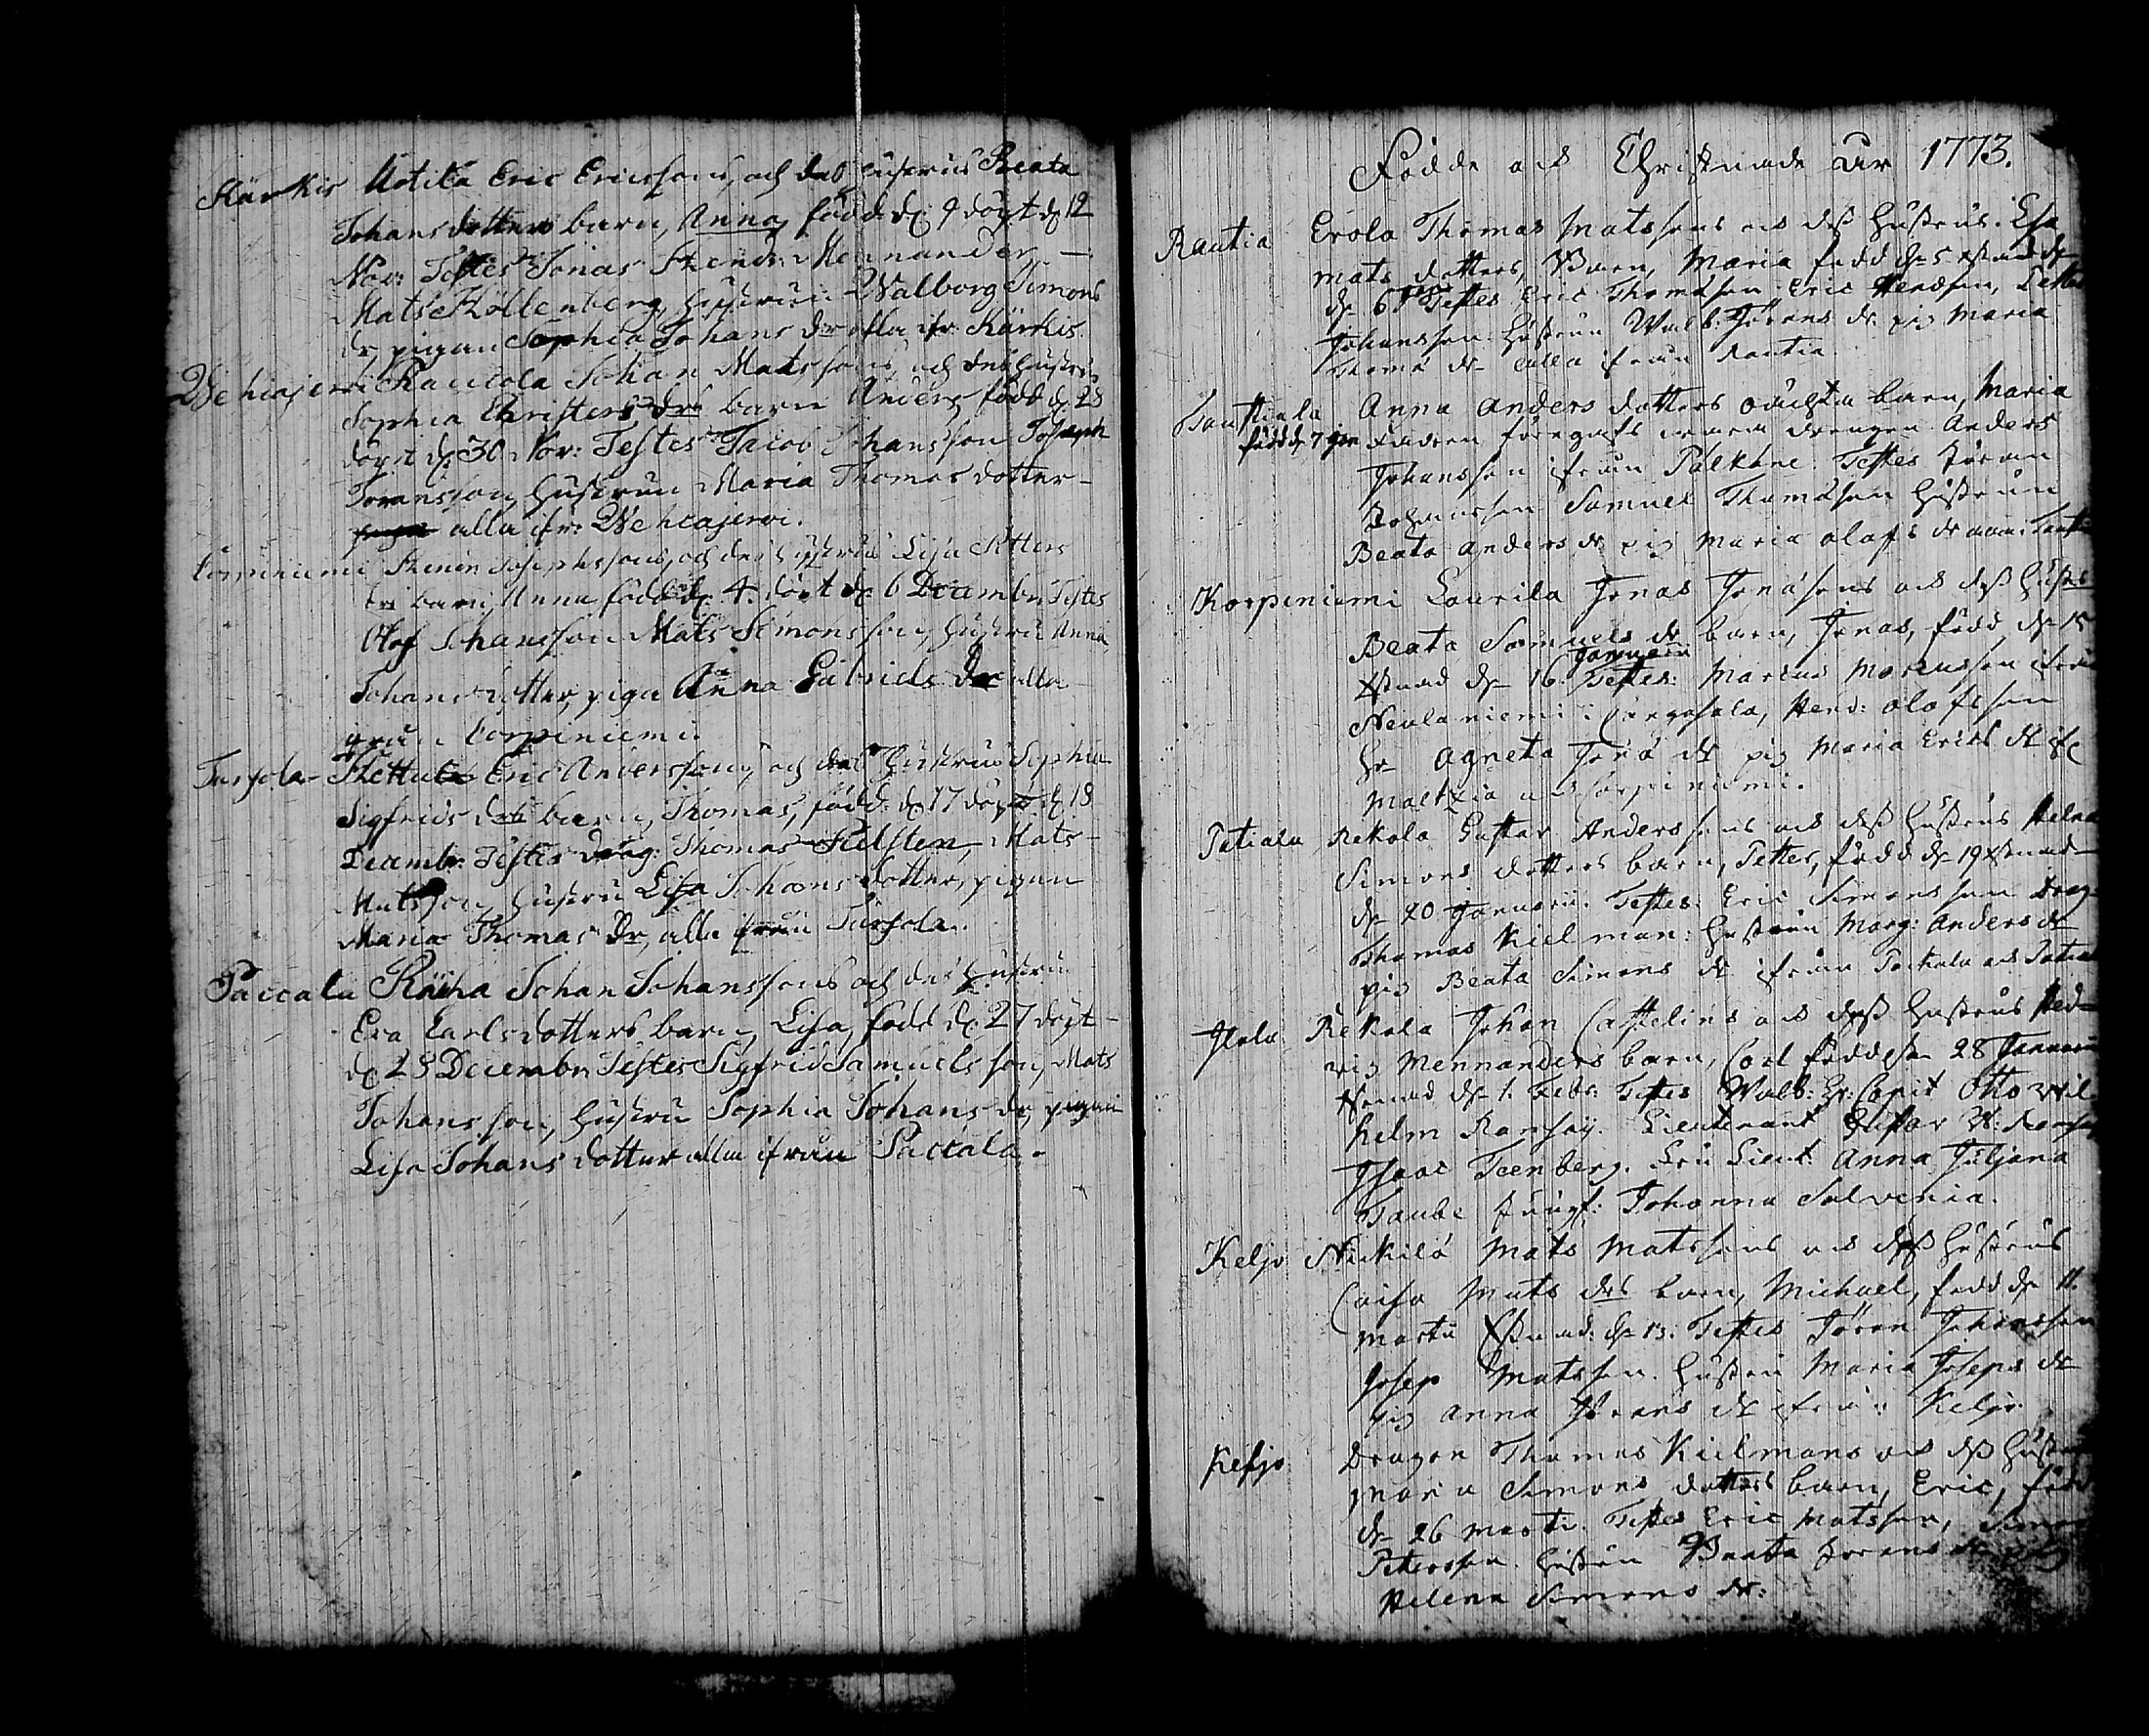 Kärkis Uotila Eric Ericssons, och dess hustrus Beata
Johansdotters barn, Anna, född d: 9 döpt d: 12
Nov: Testes Jonas Menander
Mats Hållenberg, hustrun Walborg Simons
dr, pigan Sophia Johans dr alla ifr: Kärkis
Wehiajerwi Rautola Johan Matssons, och dess hustrus
Sophia Christers drs barn Anders född d: 28
döpt d: 30 Nov: Testes Jacob Johansson Joseph
Joransson, hustrun Maria Thomas dotter
alla ifr: Wehiajerwi.
Corpiniemi Simon Josephssons, och dess hustrus Lisa Petters
drs barn, Anna född d: 4. döpt d: 6 Decembr. Testes
Olof Johansson Mats Simonsson, hustru Anna
Johans dotter, piga Anna Gabriels dr alla
från Corpiniemi.
Tursola Eric Anderssons, och dess Hustrus Sophia
Sigfrids drs barn, Thomas, född: d: 17 döpt d: 18
Decembr: Testes drag: Thomas Hellsten, Mats
Matsson, hustru Lisa Johans dotter, pigan
Maria Thomas dr, alla från Tursola.
Paccala Räiha Johan Johanssons och dess hustrus
Eva Carlsdotters barn, Lisa, född d: 27 döpt
d: 28 Decembr. Testes Sigfrid Samuelsson, Mats
Johansson, hustru Sophia Johans dr, pigan
Lisa Johans dotter alla ifrån Paccala.
Födde och Christnade åhr 1773.
Rautia Erola Thomas Matssons och dess Hustrus Esa
Mats dotters, Barn, Maria född d: 5 xstnad
d: 6 Testes Eric Thomasson Eric Hendson,
Johansson. Hustrun Walb: Jörans dr. pig Maria
Thoma dr alla ifrån Rautia
Sauttiala Anna Anders dotters oäckta barn, Maria
född d: 7 Jan Fadren föregafs wara drengen Anders
Johansson ifrån Pälkäne. Testes Jöran
Samuel Thomasson Hustrun
Beata Anders dr pig Maria Olofs dr
Korpiniemi Laurila Jonas Jonassons och dess Hustrus
Beata Samuels dr barn, Jonas, född d: 15
Januarii
xstnad d: 16. Testes: Marcus Marcusson ifrån
Neulaniemi i Cangasala, Hend: Olofsson
Hr Agneta Jona dr pig Maria Erics dr
Maltzia och Corpiniemi.
Potiala Rekola Gustav Anderssons och dess Hustrus Helena
Simons dotters barn, Petter, född d: 19 xstnad
d: 20 Januarii. Testes: Eric Simonsson Drag:
Thomas Kielman: Hustrun Marg: Anders dr
pig Beata Simons dr ifrån Pockala och Potiala
Ilola Rekola Johan Castelins och dess Hustrus Hed-
vig Mennanders barn, Carl född d: 28 Januarii
xstnad d: 1. Febr: Testes Walb: Hr: Capit Otto Wil-
helm Ramsay. Lieutenant Gustav W: Ramsay
Isaac Teenberg. Fru Lieut: Anna Juljana
Taube Jungf: Johanna Salvenia.
Keljo Nickilä Mats Matssons och dess Hustrus
Caisa Mats drs barn, Michael, född d: 11.
Martii xstnad: d: 13. Testes Jöran Johansson
Josep Matsson. Hustru Maria Joseps dr
pig Anna Jörans dr ifrån Keljo
Keljo Dragon Thomas Kielmans och dess Hustrus
Maria Simons dotters barn, Eric, född
d: 26 Marti. Testes Eric Matsson, Simon
Petersson. Hustrun Beata Jörans dr pig
Helena Simons dr: